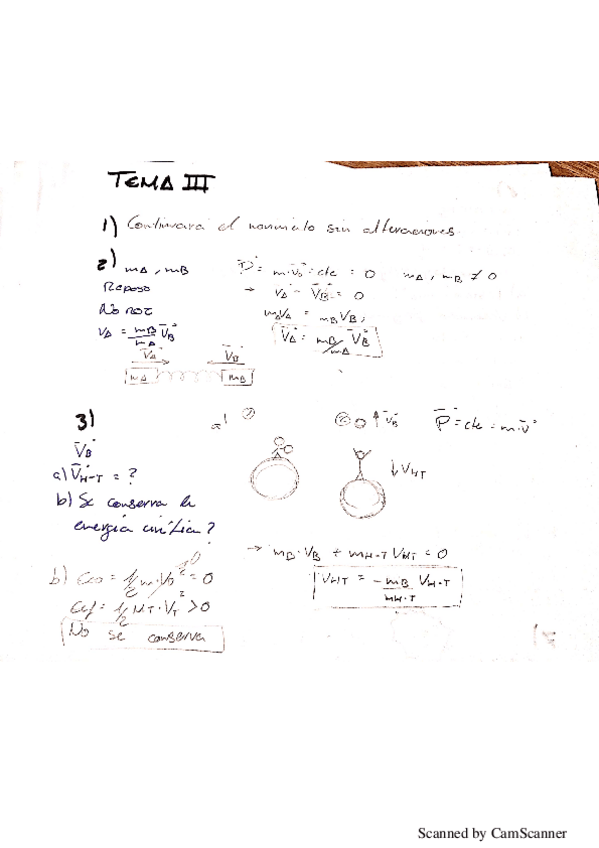 TEMA III
1) Continuara el movimiento sin alteraciones.
2) mA, mB
Reposo
No roz
VA = mB/mA VB
VA VB
mA mB
P = m·v = cte = 0 mA, mB ≠ 0
→ VA - VB = 0
mAVA = mBVB;
VA = mB/mA VB
3)
VB
a) VH-T = ?
b) Se conserva la
energía cinética?
a) ①
② ↑VB P = cte = m·v
↓VHT
→ mB·VB + mH-T VHT = 0
VHT = -mB/mH·T VH·T
b) Eco = 1/2 m·Vo² = 0
Ecf = 1/2 MT·VT² > 0
No se conserva
Scanned by CamScanner